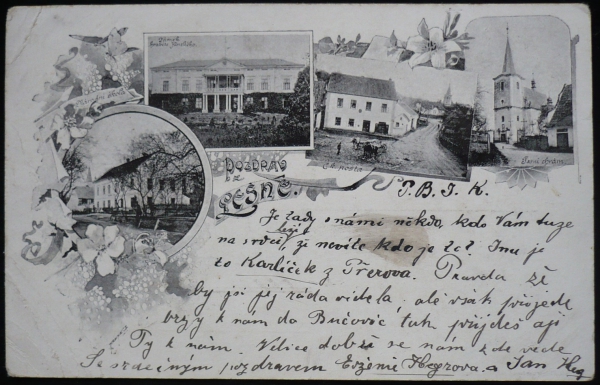 Zámek
C.k. pošta
Farní chrám
POZDRAV
Z LEŠNÉ.
P. B. J. K.
Je tady s námi někdo, kdo Vám tuze
na srdci leží, že nevíte kdo je to? Inu je
to Karlíček z Přerova. Pravda že
by jsi jej ráda viděla, ale však přijede
brzy k nám do Bučovic tak přijdeš aji
Ty k nám. Velice dobře se nám zde vede
Se srdečným pozdravem Evženie Hegrova a Jan Heg